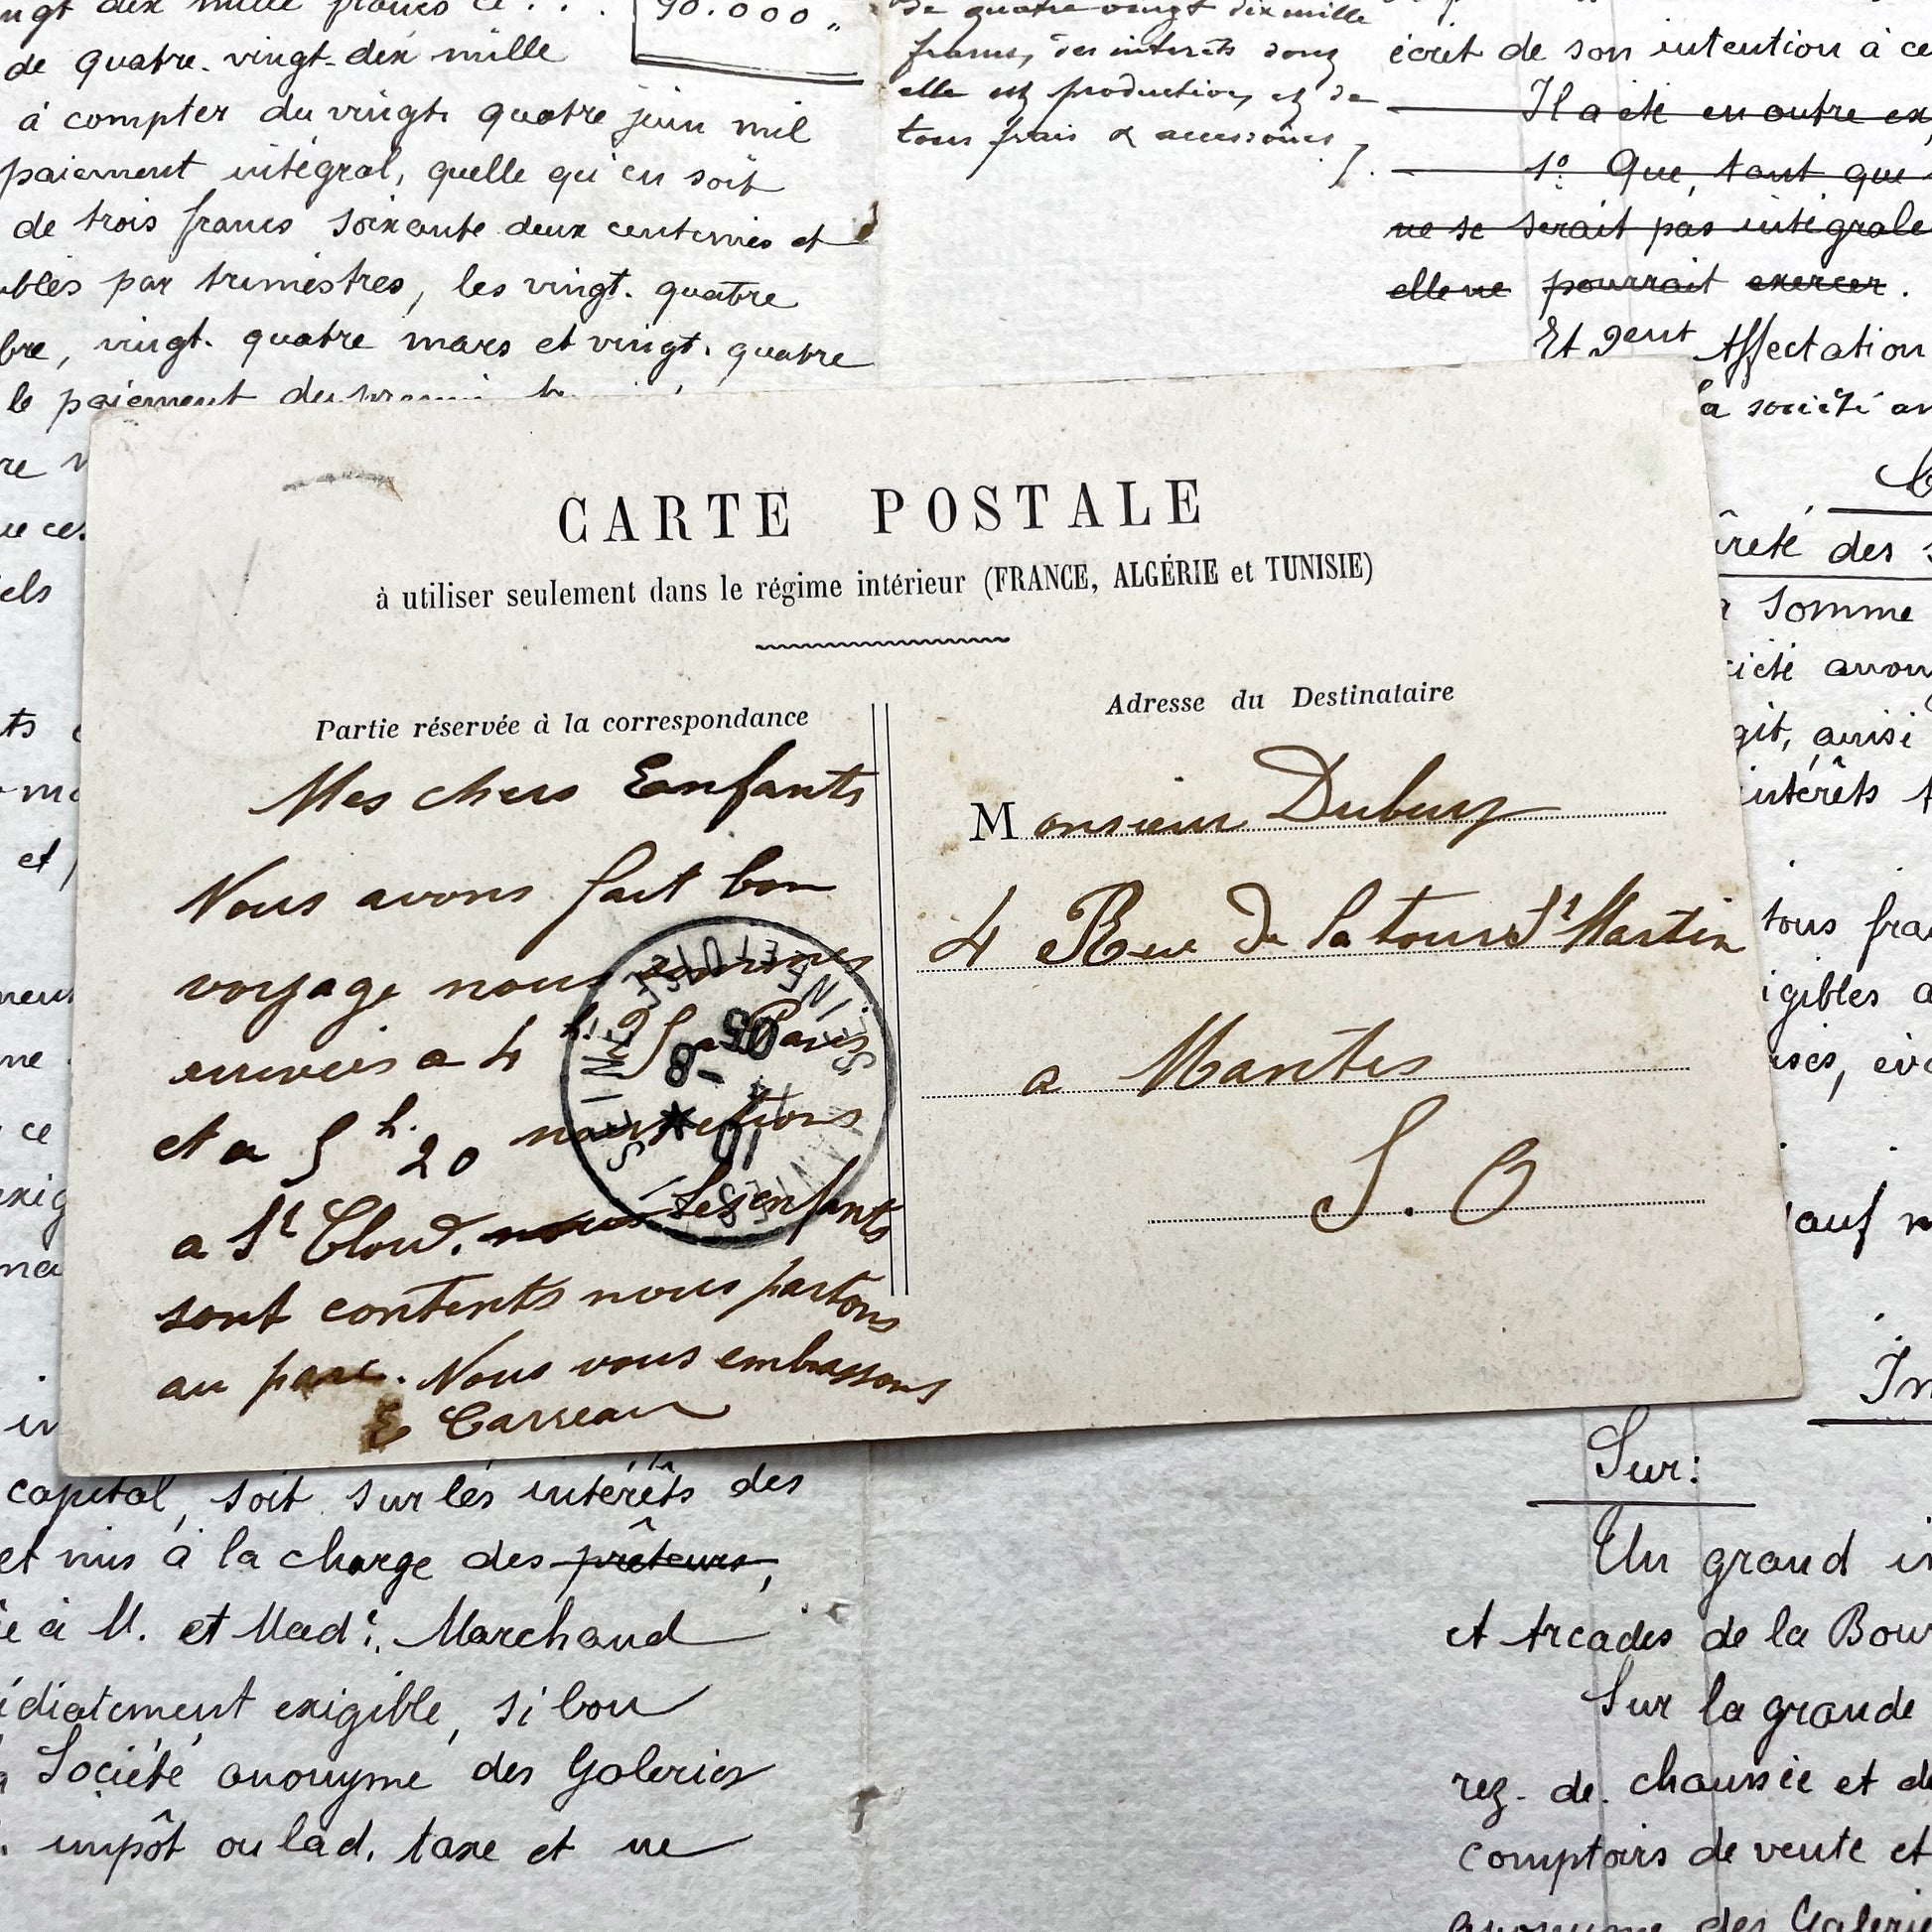 ngt dix mille francs
de quatre-vingt-dix mille
à compter du vingt-quatre juin mil
paiement intégral, quelle qu'en soit
de trois francs soixante deux centimes et
ables par trimestres, les vingt-quatre
bre, vingt-quatre mars et vingt-quatre
le paiement du
90.000 "
de quatre vingt dix mille
francs, des intérêts dont
elle est productive, et de
tous frais & accessoires
écrit de son intention à ce
Il a été en outre ex
1º Que, tant que
ne se serait pas intégrale
elle ne pourrait exercer.
Et gent Affectation
a société an
ûreté des
somme
ciété anon
git, ainsi
intérêts
tous fra
igibles
CARTE POSTALE
à utiliser seulement dans le régime intérieur (FRANCE, ALGÉRIE et TUNISIE)
Partie réservée à la correspondance
Mes chers Enfants
Nous avons fait bon
voyage nous sommes
arrivés a 4 h. 25 a Paris
et a 5 h. 20 nous etions
a St Cloud. nous Les enfants
sont contents nous partons
au parc. Nous vous embrassons
E Carreau
Adresse du Destinataire
Monsieur Dubusz
4 Rue de la tour St Martin
a Mantes
S. O
SEINE ET OISE
capital, soit sur les intérêts des
et mis à la charge des prêteurs,
à M. et Made. Marchand
édiatement exigible, si bon
Société anonyme des Galeries
impôt ou lad. taxe et ne
auf
In
Sur:
Un grand in
et Arcades de la Bour
Sur la grande
rez-de-chaussée et de
comptoirs de vente et
anonyme des Galeri